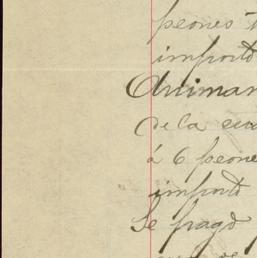 peones
importó
Animan
de la
á 6 peone
importó
Se pagó